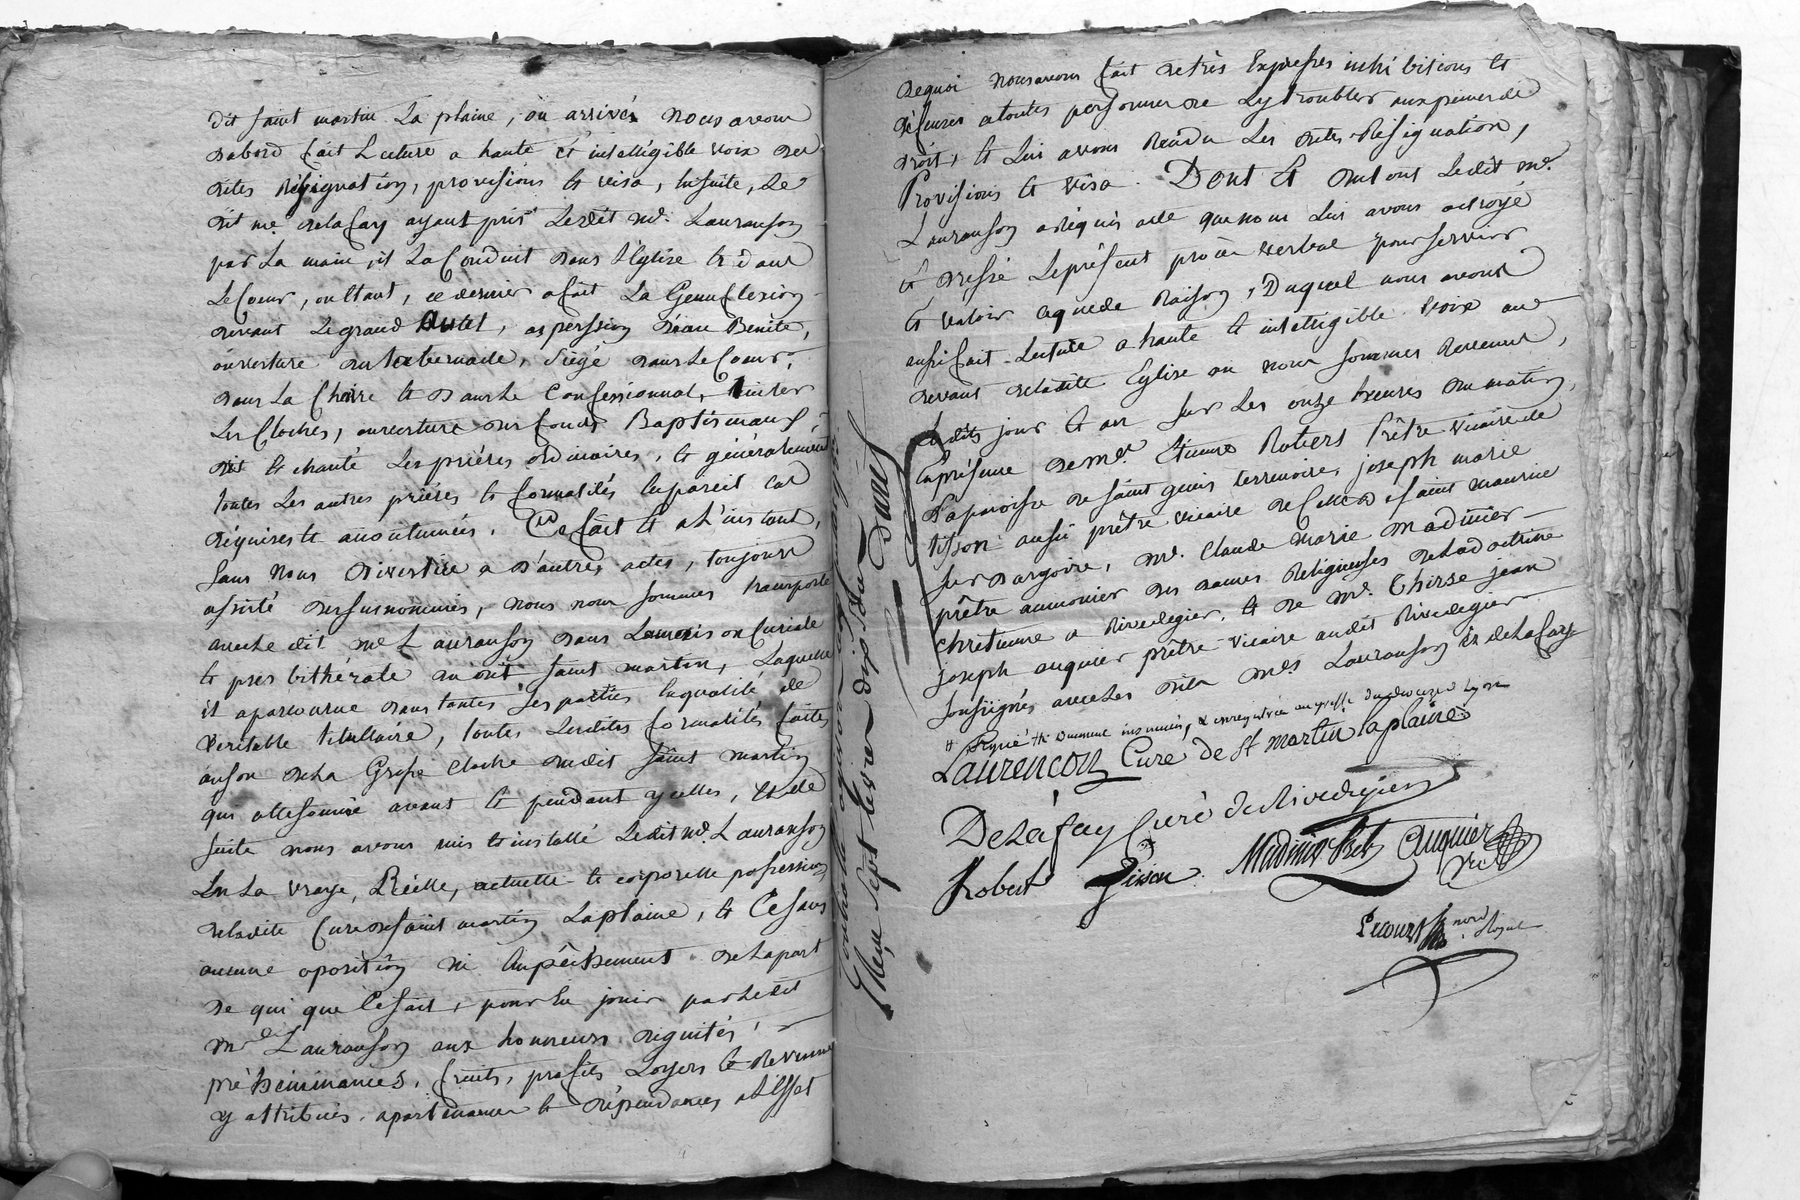 dit saint martin La plaine, ou arrivés nous avons
dabord fait Lecture a haute et intelligible voix des
dites Résignation, provisions et visa, Ensuite, Le
dit me. delafay ayant pris Ledit me. Lauranson
par La main, il La Conduit dans L'Eglise et dans
Le Coeur, ou Etant, ce dernier a fait La Genuflexion
devant Le grand Autel, aspersion d'eau Benite,
ouverture du tabernacle, siégé dans Le Coeur,
dans La Chaire et dans Le Confessionnal, tinter
Les Cloches, ouverture des fonds Baptismaux,
dit et chanté Les priéres ordinaires, et généralement
toutes Les autres priéres et formalités En pareil cas
réquises et acoutumées. Ce fait et a L'instant,
sans nous divertir a d'autres actes, toujours
assisté des susnommés, nous nous sommes transporté
avec Le dit me Lauranson dans La maison Curiale
et presbithérale du dit saint martin, Laquelle
il a parcourue dans toutes ses parties En qualité de
veritable titullaire, toutes Lesdites formalités faites
au son de La Grosse Cloche dudit saint martin
qui a été sonnée avant et pendant ycelles, Et de
suite nous avons mis et installé Ledit me. Lauranson
En La vraye, Réelle, actuelle et corporelle possession
de Ladite Cure de saint martin Laplaine, et Ce sans
aucune oposition ni Empêchement de La part
de qui que Ce soit, pour En jouir par Ledit
me Lauranson aux honneurs, dignités,
prééminances, fruits, profits Loyers et Revenus
y attribués. apartenances et dépendances a L'Effet
Controllé a
Reçu sept Livres dix sous Dures
dequoi nous avons fait de très Expresses inhibitions et
défenses a toutes personnes de Ly troubler aux peines de
droit, et Lui avons Rendu Les dites Résignation,
Provisions et visa. Dont Et du tout Ledit me.
Lauranson a réquis acte que nous Lui avons octroyé
et dressé Le présent procès verbal pour servir
et valoir ce que de Raison, Duquel nous avons
aussi fait Lecture a haute et intelligible voix au
devant de Ladite Eglise ou nous sommes Revenus,
Lesdits jour et an sur Les onze heures du matin,
En présence de me. Etienne Robert Prêtre vicaire de
La paroisse de saint genis terrenoire, joseph marie
tisson aussi prêtre vicaire de Celle de saint maurice
sur dargoire, me. Claude Marie Madinier
prêtre aumonier des dames Religieuses de La doctrine
chretienne a Rivedegier, et de me. Thirse jean
joseph auquier prêtre vicaire audit Rivedegier
soussignés avec Les dits mes Lauranson et de Lafay
# signé # Comme insinués, & enregistrés au greffe du diocèze de Lyon
Laurencon Curé de St martin laplaine
DeLafay Curé de Rivedegier
Robert Tisson Madinier Pbre Auquier
vic
Lecourt nore Royal